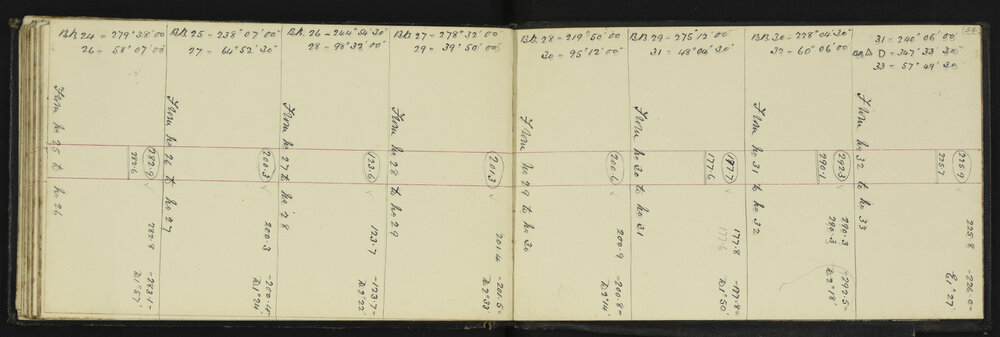 BB. 24 = 279° 38' 00"
26 = 58° 07' 00"
From No 25 to No 26
282.9
282.6
282.8
-283.1-
D 1° 57'
BB. 25 = 238° 07' 00"
27 = 64° 52' 30"
From No 26 to No 27
200.3
200.3
-200.4-
D 1° 24'
BB. 26 = 244° 54' 30"
28 = 98° 32' 00"
From No 27 to No 28
123.6
123.7
-123.7-
D 2° 22'
BB. 27 = 278° 32' 00"
29 = 39° 50' 00"
From No 28 to No 29
201.3
201.4
-201.5-
D 2° 33'
BB. 28 = 219° 50' 00"
30 = 95° 12' 00"
From No 29 to No 30
200.6
200.9
-200.8-
D 2° 14'
BB. 29 = 275° 12' 00"
31 = 48° 04' 30"
From No 30 to No 31
177.7
177.6
177.8
177.6
-177.8-
D 1° 50'
BB. 30 = 228° 04' 30"
32 = 60° 06' 00"
From No 31 to No 32
292.3
290.1
290.3
290.3
-292.5-
D 2° 18'
54
31 = 240° 06' 00"
Δ D = 347° 33' 30"
33 = 57° 49' 30"
From No 32 to No 33
225.9
225.7
225.8
-226.0-
E 1° 27'